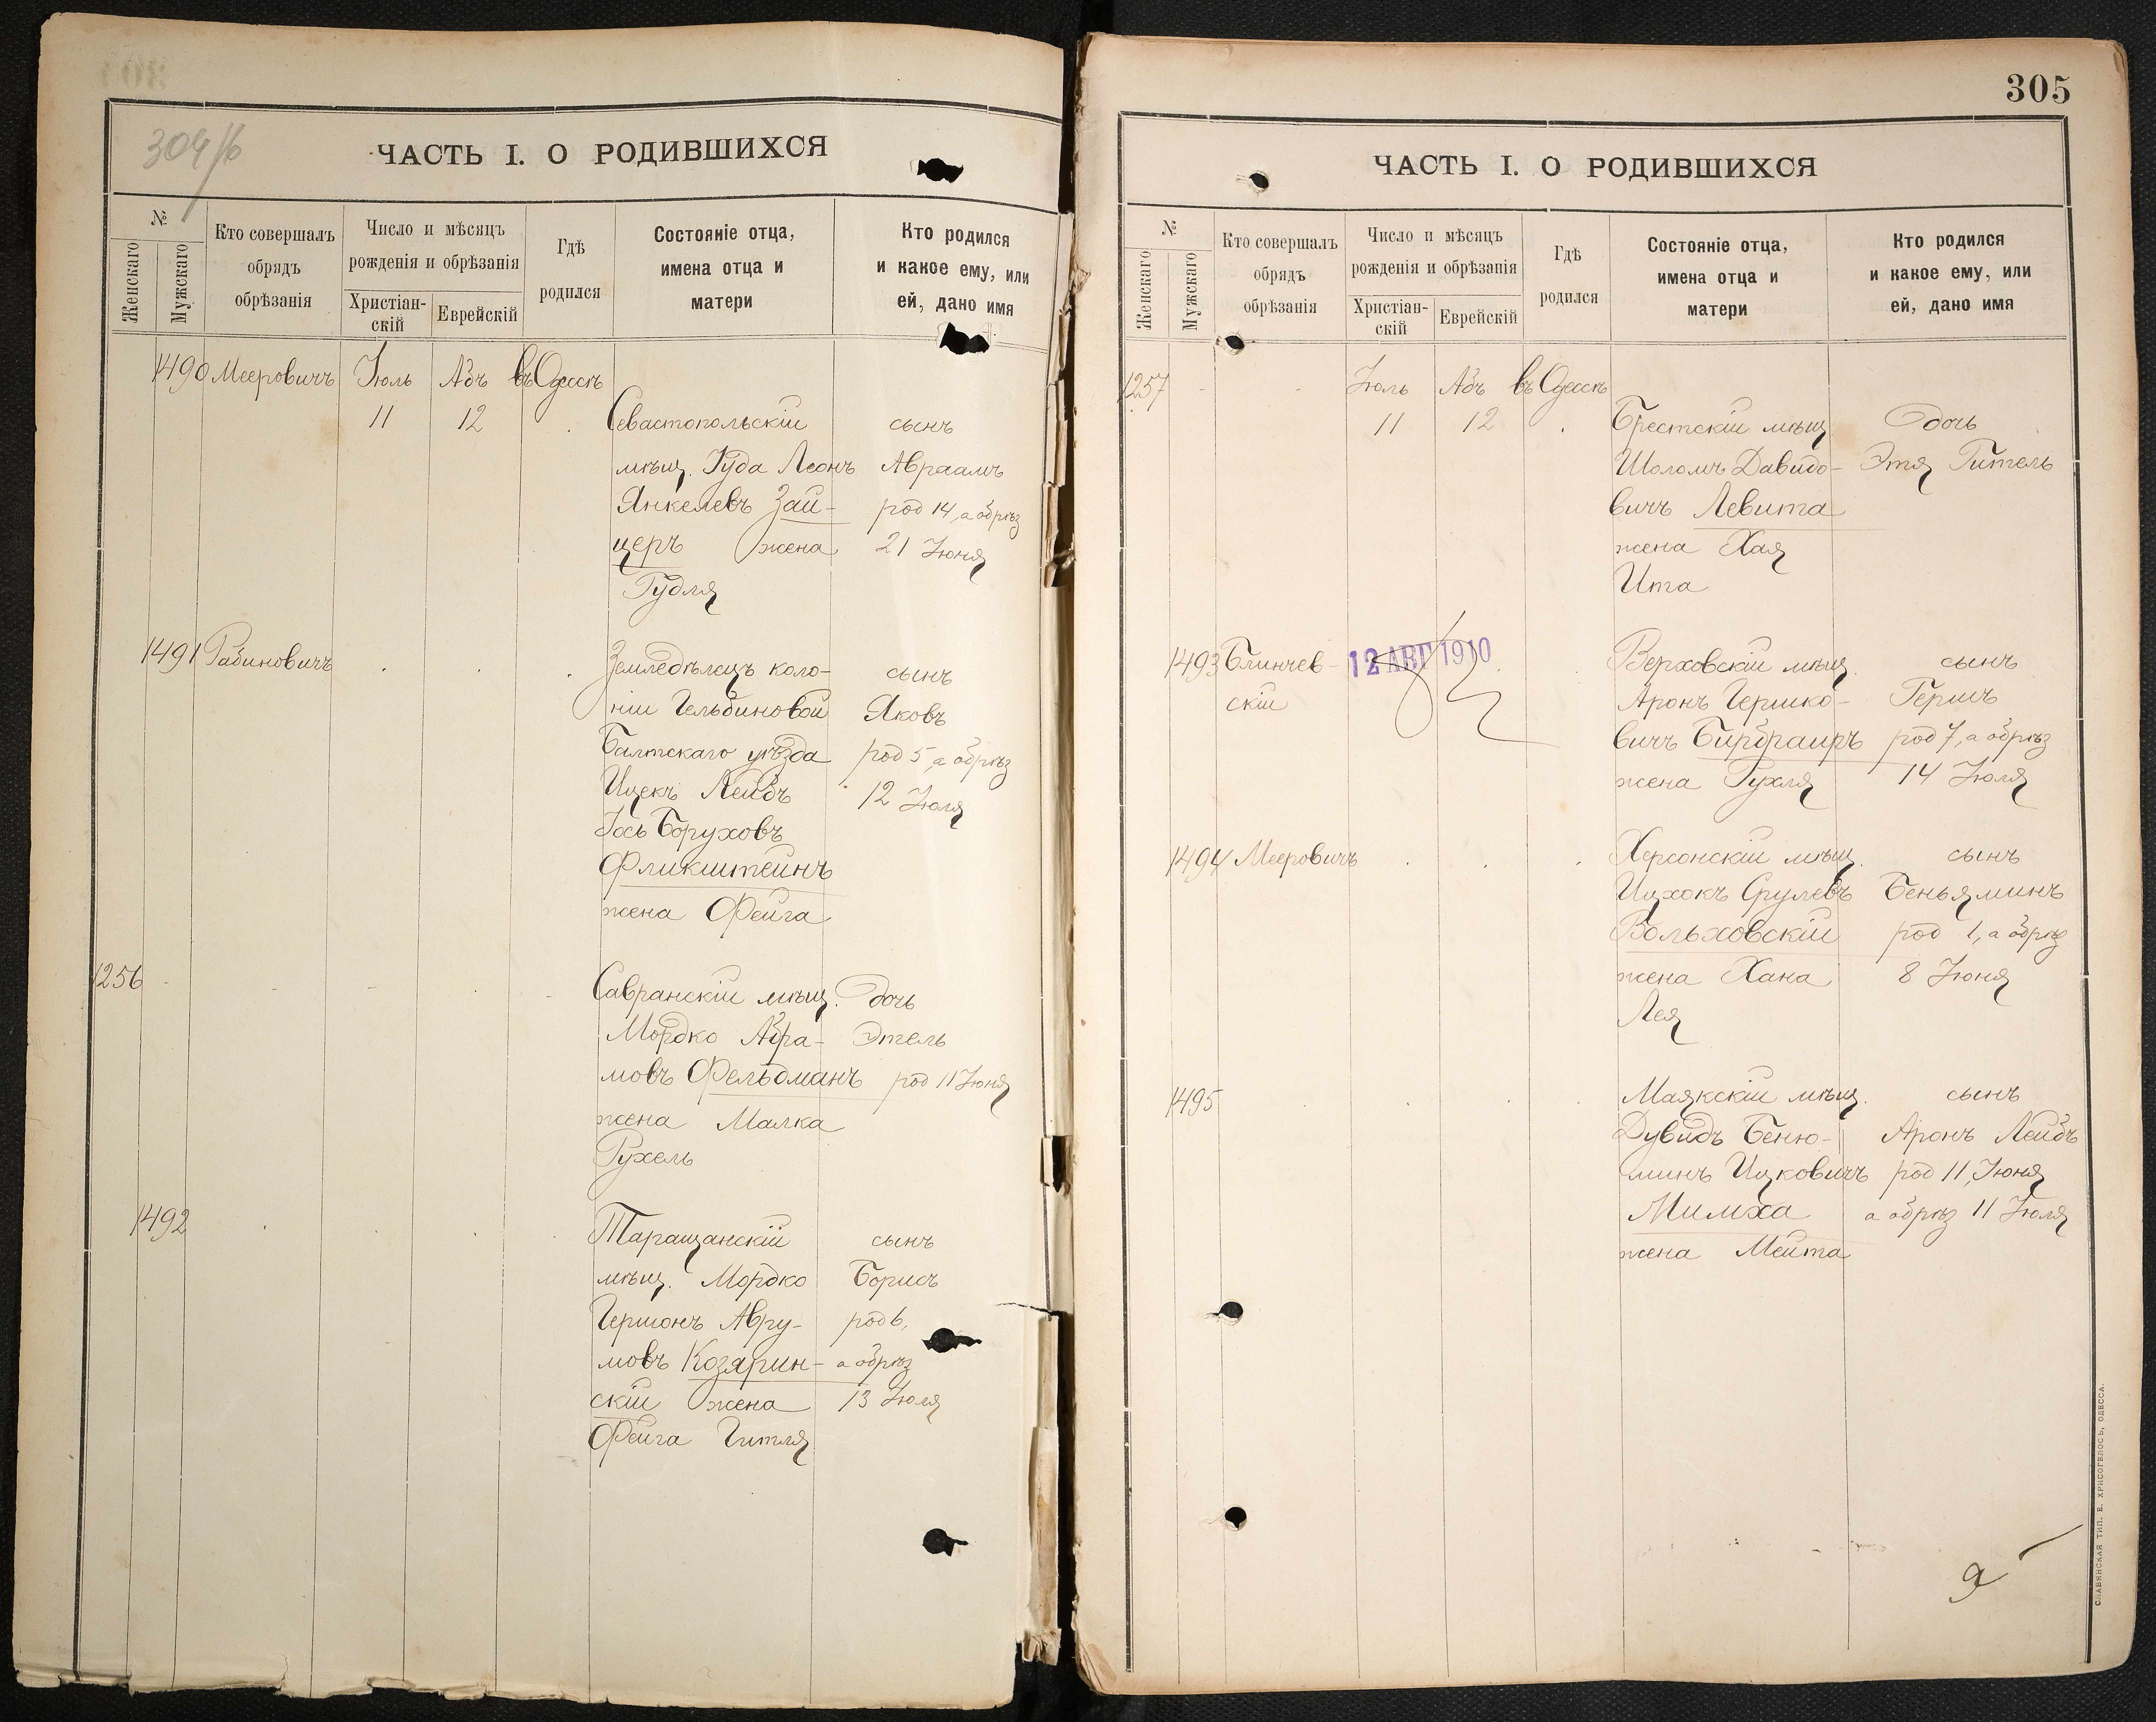 304/б
ЧАСТЬ I. О РОДИВШИХСЯ
№
Женскаго
Мужскаго
Кто совершалъ
обрядъ
обрѣзанія
Число и мѣсяцъ
рожденія и обрѣзанія
Христіан-
скій
Еврейскій
Гдѣ
родился
Состояніе отца,
имена отца и
матери
Кто родился
и какое ему, или
ей, дано имя
1490 Мееровичъ Іюль Абъ въ Одессѣ
11 12
Севастопольскій сынъ
мѣщ. Іуда Леонъ Авраамъ
Янкелевъ Зай- род 14, а обрѣз
церъ жена 21 Іюня
Гудля
1491 Рабиновичъ Земледѣлецъ коло- сынъ
ніи Гельбиновой Яковъ
Балтскаго уѣзда род 5, а обрѣз
Ицекъ Лейбъ 12 Іюля
Іось Боруховъ
Фликштейнъ
жена Фейга
1256 Савранскій мѣщ. дочь
Мордко Абра- Этель
мовъ Фельдманъ род 11 Іюня
жена Малка
Рухель
1492 Таращанскій сынъ
мѣщ. Мордко Борисъ
Гершонъ Авру- род 6,
мовъ Козярин- а обрѣз
скій жена 13 Іюля
Фейга Гитля
305
ЧАСТЬ I. О РОДИВШИХСЯ
№
Женскаго
Мужскаго
Кто совершалъ
обрядъ
обрѣзанія
Число и мѣсяцъ
рожденія и обрѣзанія
Христіан-
скій
Еврейскій
Гдѣ
родился
Состояніе отца,
имена отца и
матери
Кто родился
и какое ему, или
ей, дано имя
1257 Іюль Абъ въ Одессѣ
11 12
Брестскій мѣщ дочь
Шоломъ Давидо- Этя Гитель
вичъ Левита
жена Хая
Ита
1493 Блинчев- 12 АВГ 1910 Верховскій мѣщ. сынъ
скій Аронъ Гершко- Гершъ
вичъ Бирбраиръ род 7, а обрѣз
жена Рухля 14 Іюля
1494 Мееровичъ Херсонскій мѣщ. сынъ
Ицхокъ Срулевъ Беньяминъ
Вольховскій род 1, а обрѣз
жена Хана 8 Іюня
Лея
1495 Маякскій мѣщ. сынъ
Дувидъ Беню- Аронъ Лейбъ
минъ Ицковичъ род 11, Іюня
Милиха а обрѣз 11 Іюля
жена Мейта
СЛАВЯНСКАЯ ТИП. Е. ХРИСОГЕЛОСЪ, ОДЕССА.